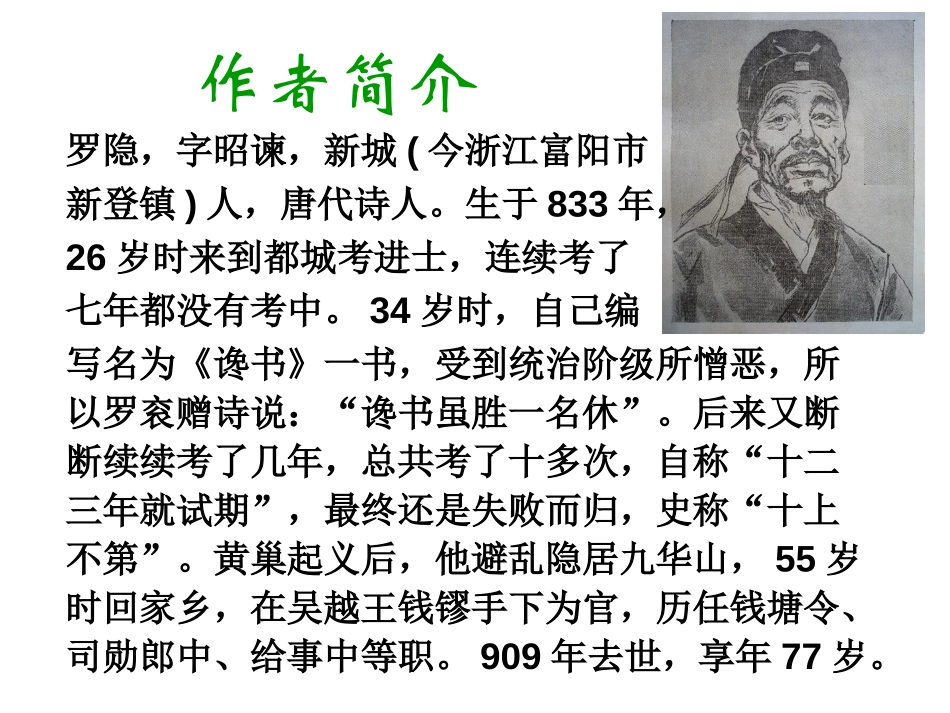 作者简介
罗隐，字昭谏，新城 ( 今浙江富阳市
新登镇 ) 人，唐代诗人。生于 833 年，
26 岁时来到都城考进士，连续考了
七年都没有考中。 34 岁时，自己编
写名为《谗书》一书，受到统治阶级所憎恶，所
以罗衮赠诗说：“谗书虽胜一名休”。后来又断
断续续考了几年，总共考了十多次，自称“十二
三年就试期”，最终还是失败而归，史称“十上
不第”。黄巢起义后，他避乱隐居九华山， 55 岁
时回家乡，在吴越王钱镠手下为官，历任钱塘令、
司勋郎中、给事中等职。 909 年去世，享年 77 岁。